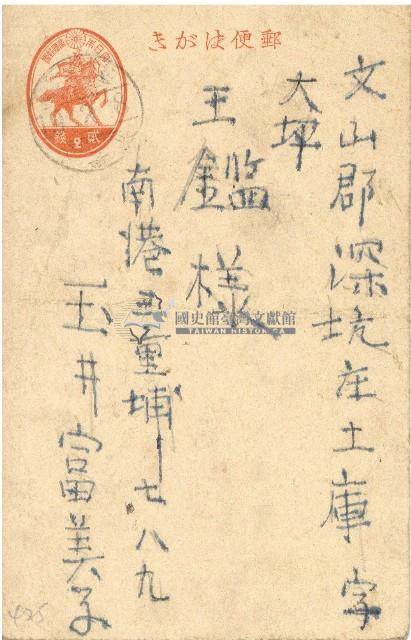 郵便はがき
文山郡深坑庄土庫字
大坪
王鑑様
南港三重埔七八九
玉井富美子
國史館臺灣文獻館
TAIWAN HISTORICA
貳2銭
425